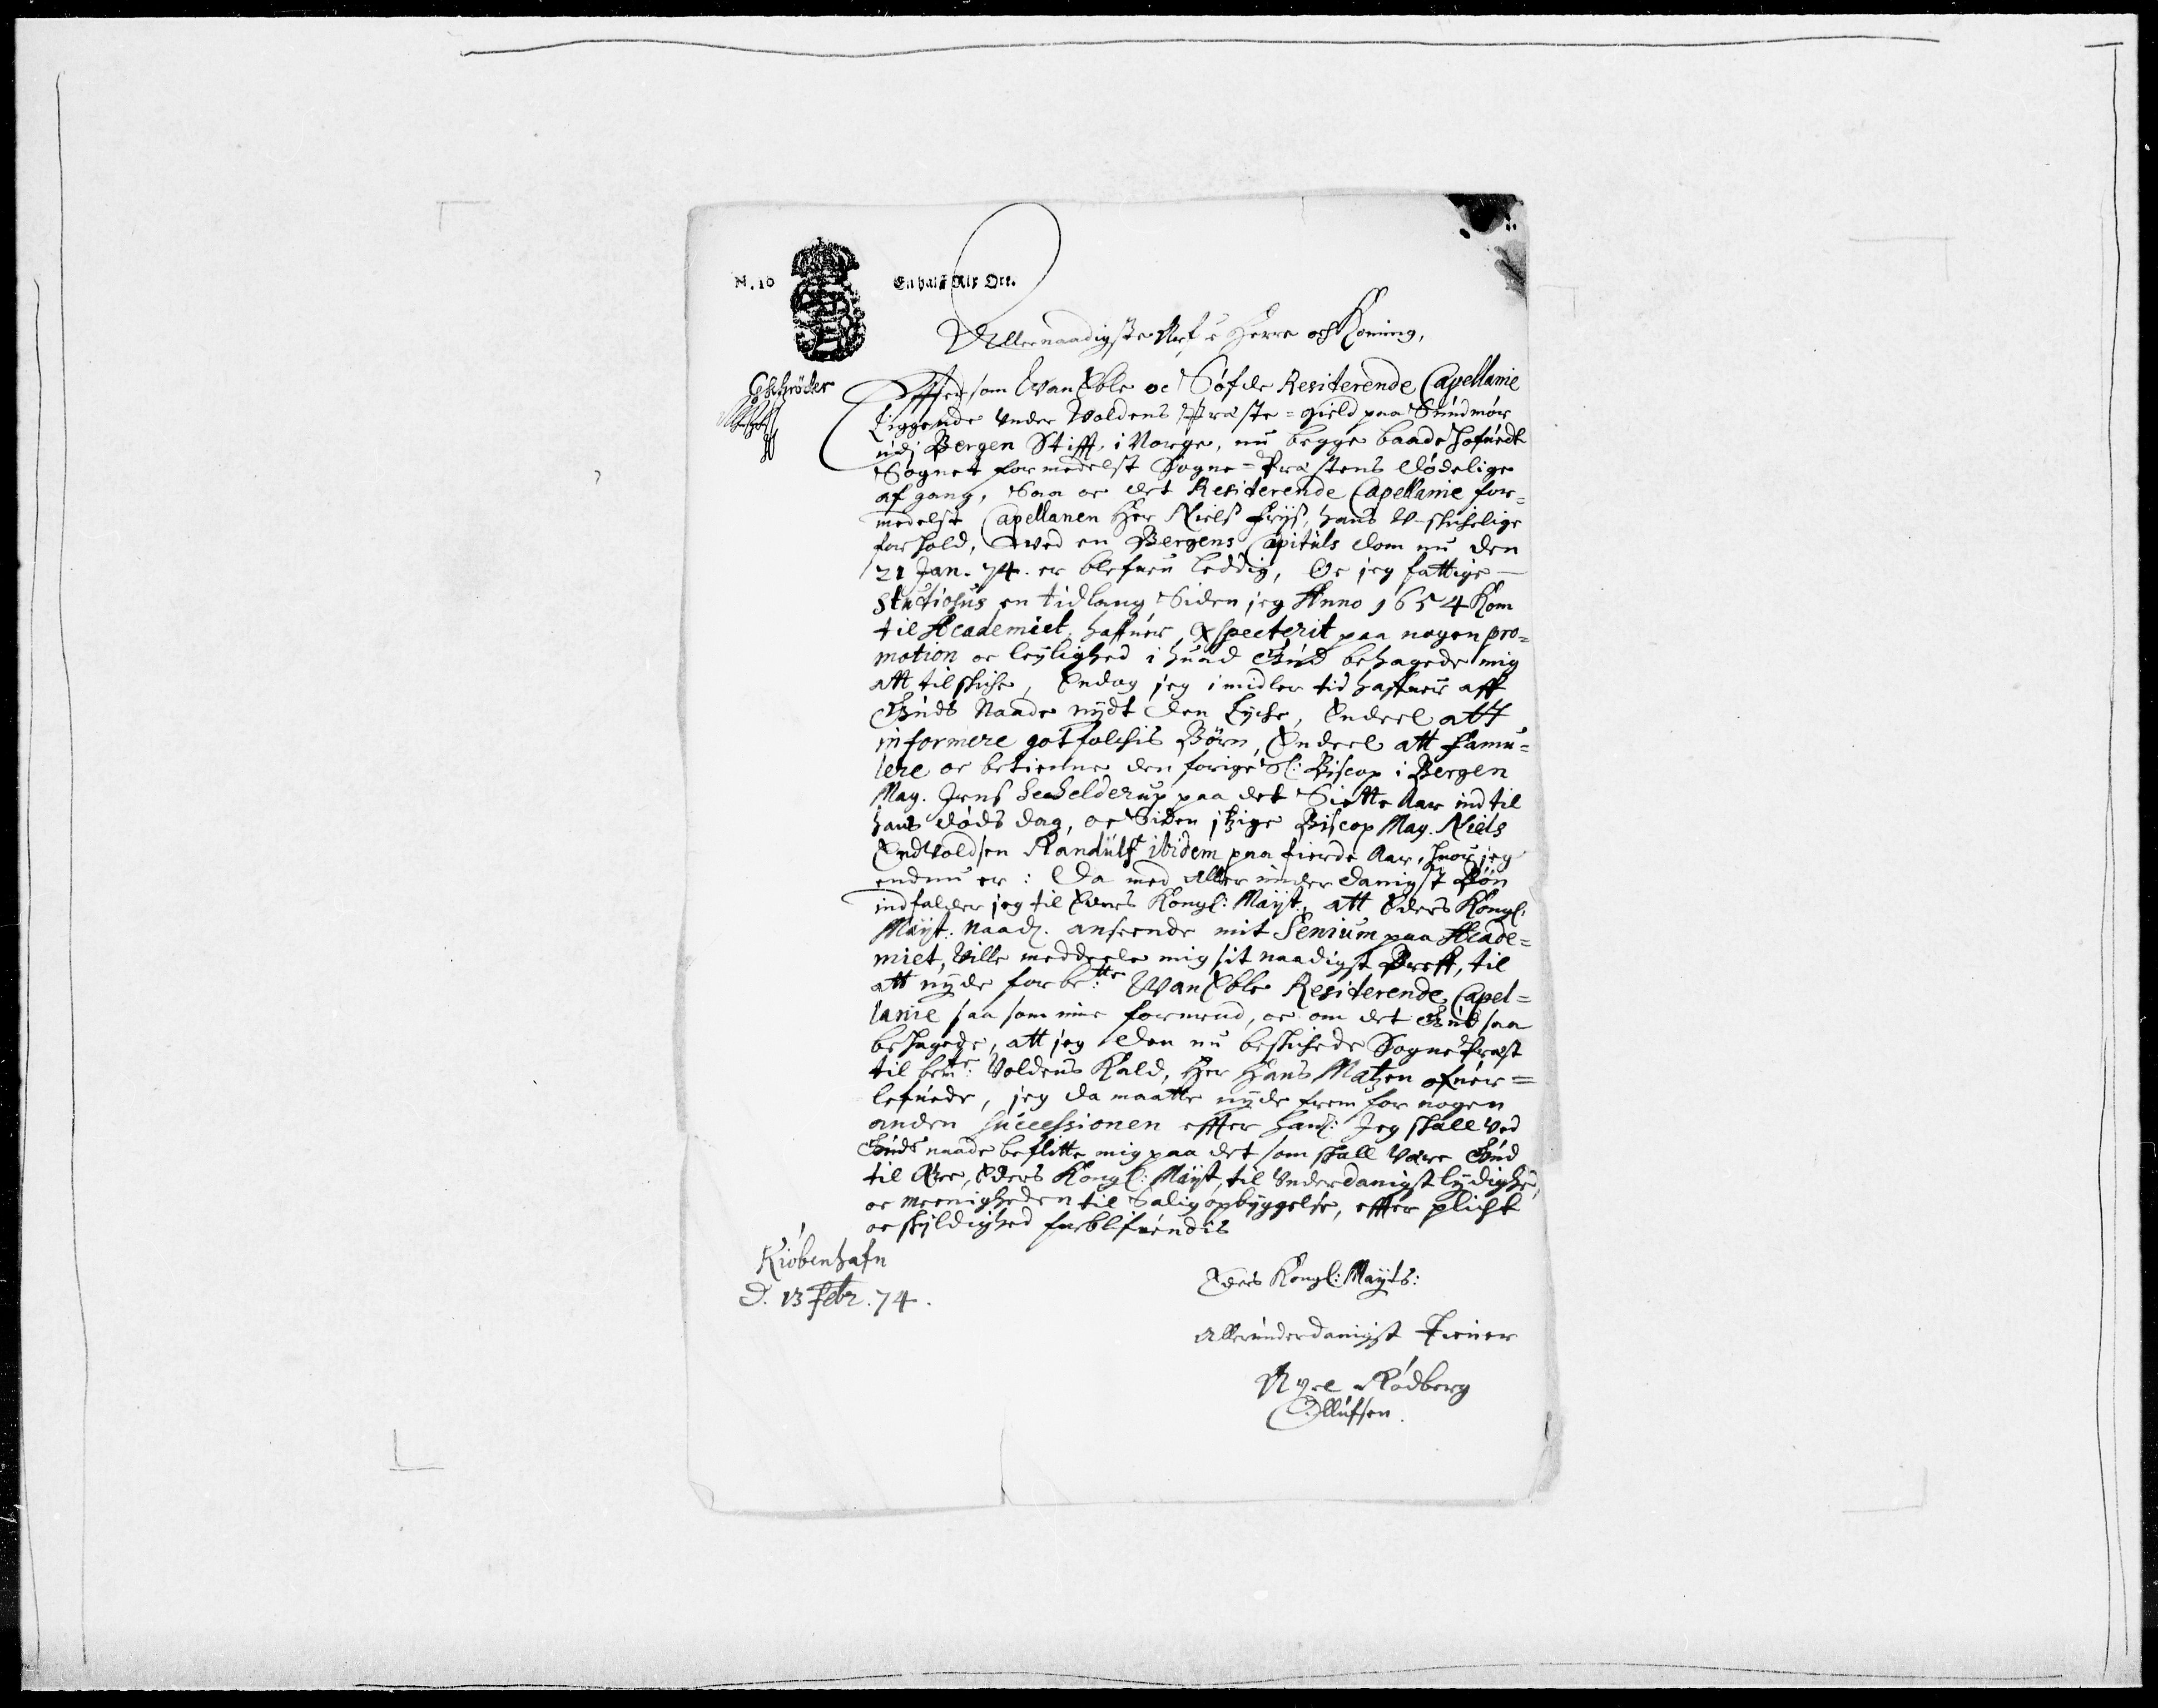 N. 10
En halff Rix Ort.
Allernaadigste Arf-Herre och Koning,
GSchröder
Effter som WanElve oc Søfde Residerende Capellanie
Liggende under Woldens Præste-gield paa Sundmør
udj Bergen Stifft, i Norge, nu begge baade Hofuedt
Sognet formedelst Sogne-Præstens dødelige
afgang, Saa oc det Residerende Capellanie for-
medelst Capellanen Her Niels Friis, hans W-skickelige
forhold, ved en Bergens Capituls dom nu den
21 Jan. 74. er blefuen leddig, Oc jeg fattige
Studiosus en tidlang Siden jeg Anno 1654 Kom
til Academiet, haffuer Expecterit paa nogen pro-
motion oc leylighed i huad Gud behagede mig
att tilskicke, Endog jeg imidlertid haffuer aff
Guds Naade nydt den Lycke, Endeel att
informere got folckis Børn, Endeel att famu-
lere oc betienne den forige Sl: Biscop i Bergen
Mag. Jens Schelderup paa det Siette Aar ind til
hans døds dag, oc Siden itzige Biscop Mag. Niels
Endvoldsen Randulf ibidem paa fierde Aar, huor jeg
endnu er: Da med Aller underdanigst Bøn
indfalder jeg til Eders Kongl: Mayst., att Eders Kongl:
Mayst: Naad. anseende mit Senium paa Acade-
miet, Ville meddeele mig sit naadigst Breff, til
att nyde forbe:tte WanElve Residerende Capel-
lanie saa som min formand, oc om det Gud saa
behagede, att jeg den nu beskickede Sogne Præst
til bem:te: Voldens Kald, Her Hans Matzen ofuer-
lefuede, jeg da maatte nyde frem for nogen
anden successionen effter ham: Jeg skall ved
Guds naade beflitte mig paa det som skall være Gud
til Ære, Eders Kongl: Mayst, til Underdanigst lydighed,
oc Meenigheden til Salig opbyggelse, effter plicht
oc skyldighed forblifuendis
Kiøbenhafn
d. 13 Febr. 74.
Eders Kongl: Mayts:
Allerunderdanigst Tiener
Axel Rødberg
Ollufsen.